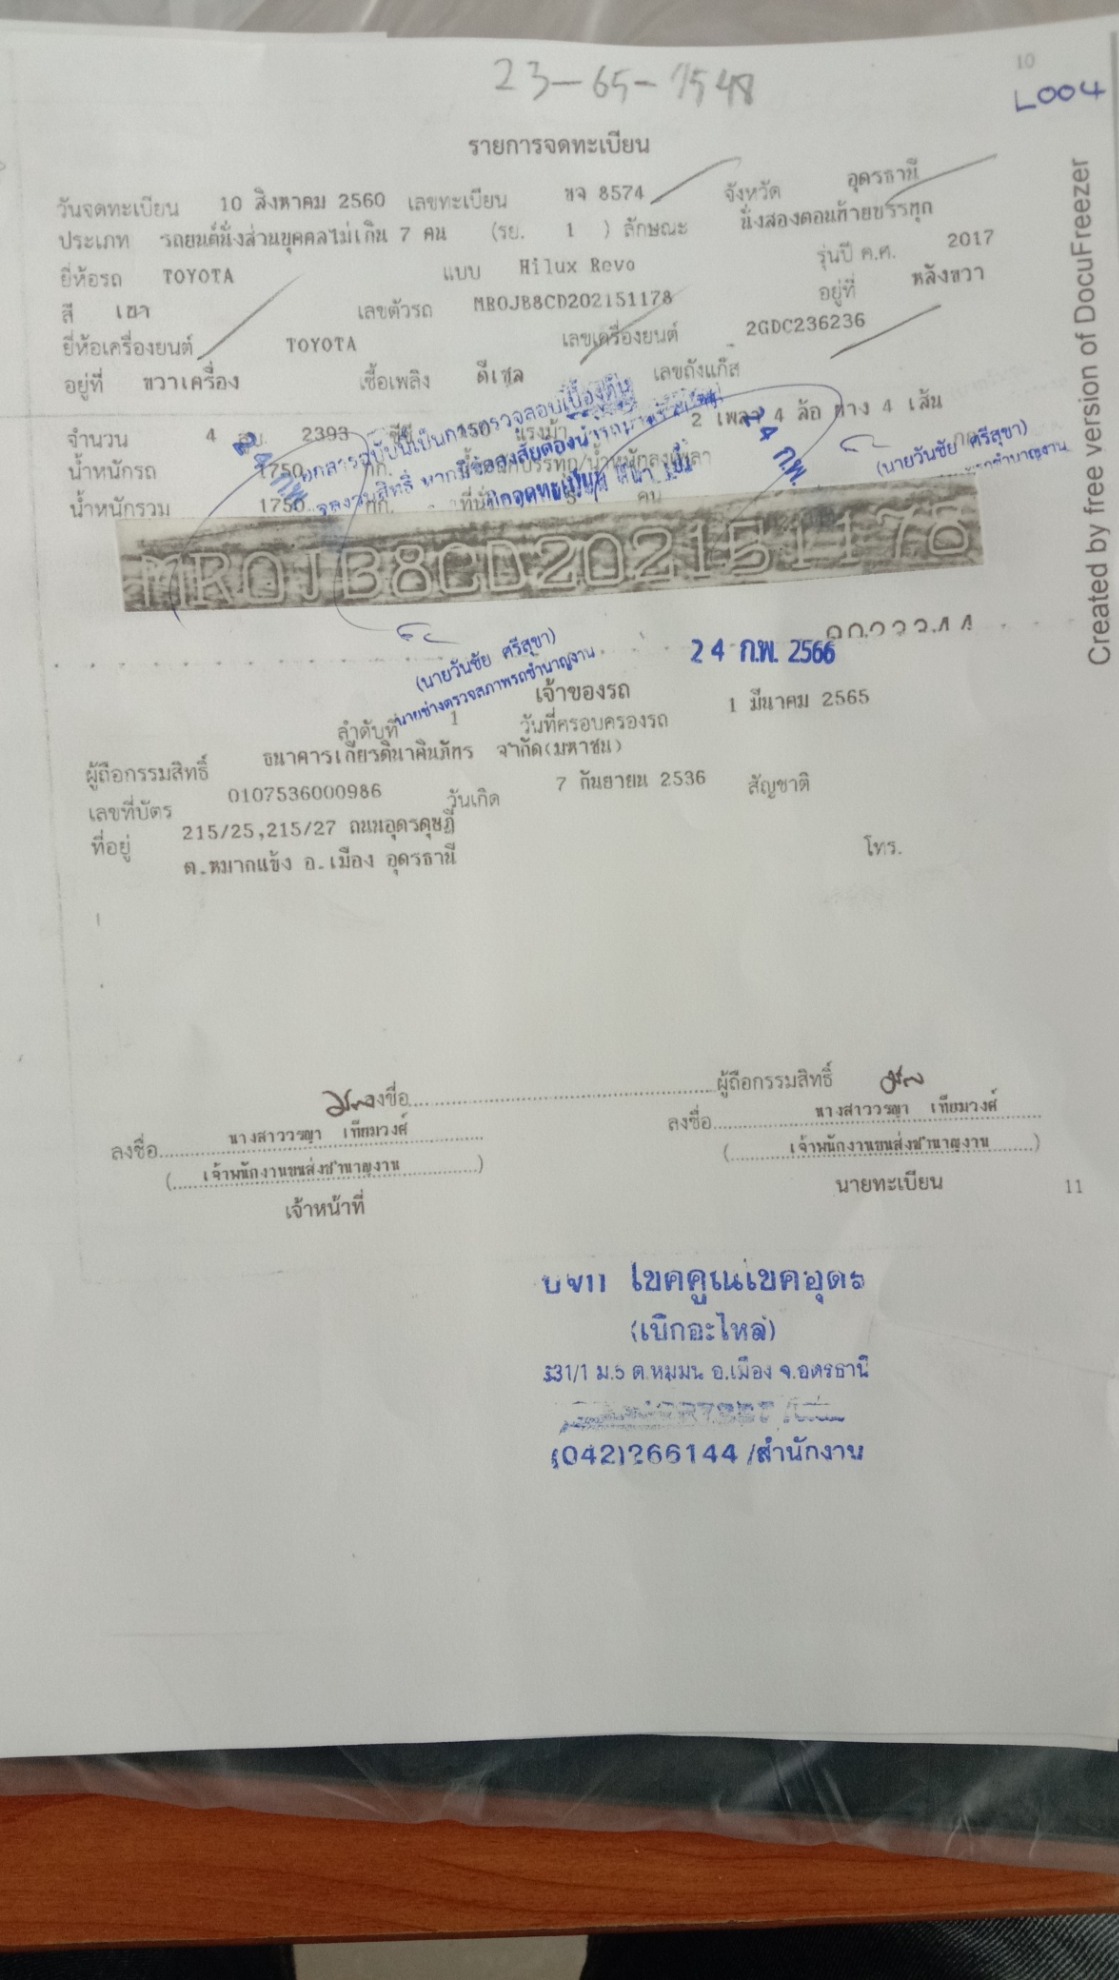 23-65-7548
10
L004
รายการจดทะเบียน
วันจดทะเบียน 10 สิงหาคม 2560 เลขทะเบียน ขจ 8574 จังหวัด อุดรธานี
ประเภท รถยนต์นั่งส่วนบุคคลไม่เกิน 7 คน (รย. 1 ) ลักษณะ นั่งสองตอนท้ายบรรทุก
ยี่ห้อรถ TOYOTA แบบ Hilux Revo รุ่นปี ค.ศ. 2017
สี เทา เลขตัวรถ MR0JB8CD202151178 อยู่ที่ หลังขวา
ยี่ห้อเครื่องยนต์ TOYOTA เลขเครื่องยนต์ 2GDC236236
อยู่ที่ ขวาเครื่อง เชื้อเพลิง ดีเซล เลขถังแก๊ส
จำนวน 4 สูบ 2393 ซีซี 150 แรงม้า 2 เพลา 4 ล้อ ยาง 4 เส้น
น้ำหนักรถ 1750 กก. น้ำหนักบรรทุก/น้ำหนักลงเพลา
น้ำหนักรวม 1750 กก. ที่นั่ง คน
เอกสารฉบับนี้เป็นการตรวจสอบเบื้องต้น
24 ก.พ.
24 ก.พ.
(นายวันชัย ศรีสุขา)
MR0JB8CD202151178
(นายวันชัย ศรีสุขา)
นายช่างตรวจสภาพรถชำนาญงาน
24 ก.พ. 2566
เจ้าของรถ
ลำดับที่ 1 วันที่ครอบครองรถ 1 มีนาคม 2565
ผู้ถือกรรมสิทธิ์ ธนาคารเกียรตินาคินภัทร จำกัด(มหาชน)
เลขที่บัตร 0107536000986 วันเกิด 7 กันยายน 2536 สัญชาติ
ที่อยู่ 215/25,215/27 ถนนอุดรดุษฎี
ต.หมากแข้ง อ.เมือง อุดรธานี โทร.
ลงชื่อ ผู้ถือกรรมสิทธิ์
ลงชื่อ นางสาววรญา เทียมวงศ์ ลงชื่อ นางสาววรญา เทียมวงศ์
( เจ้าพนักงานขนส่งชำนาญงาน ) ( เจ้าพนักงานขนส่งชำนาญงาน )
เจ้าหน้าที่ นายทะเบียน
11
(เบิกอะไหล่)
331/1 ม.5 ต.หมูม่น อ.เมือง จ.อุดรธานี
(042)266144 /สำนักงาน
Created by free version of DocuFreezer